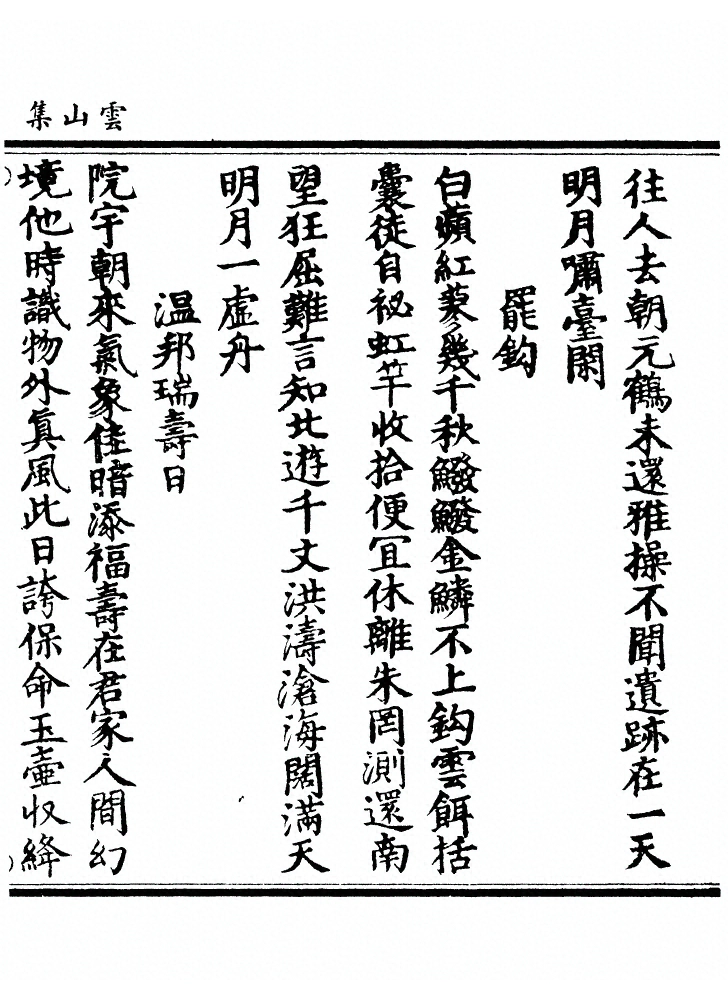 雲山集
往人去朝元鶴未還雅操不聞遺跡在一天
明月嘯臺閑
罷鈎
白蘋紅蓼幾千秋鱍鱍金鱗不上鈎雲餌括
囊徒自祕虹竿收拾便宜休離朱罔測還南
望狂屈難言知北遊千丈洪濤滄海闊滿天
明月一虛舟
温邦瑞壽日
院宇朝來氣象佳暗添福壽在君家人間幻
境他時識物外眞風此日誇保命玉壷收絳